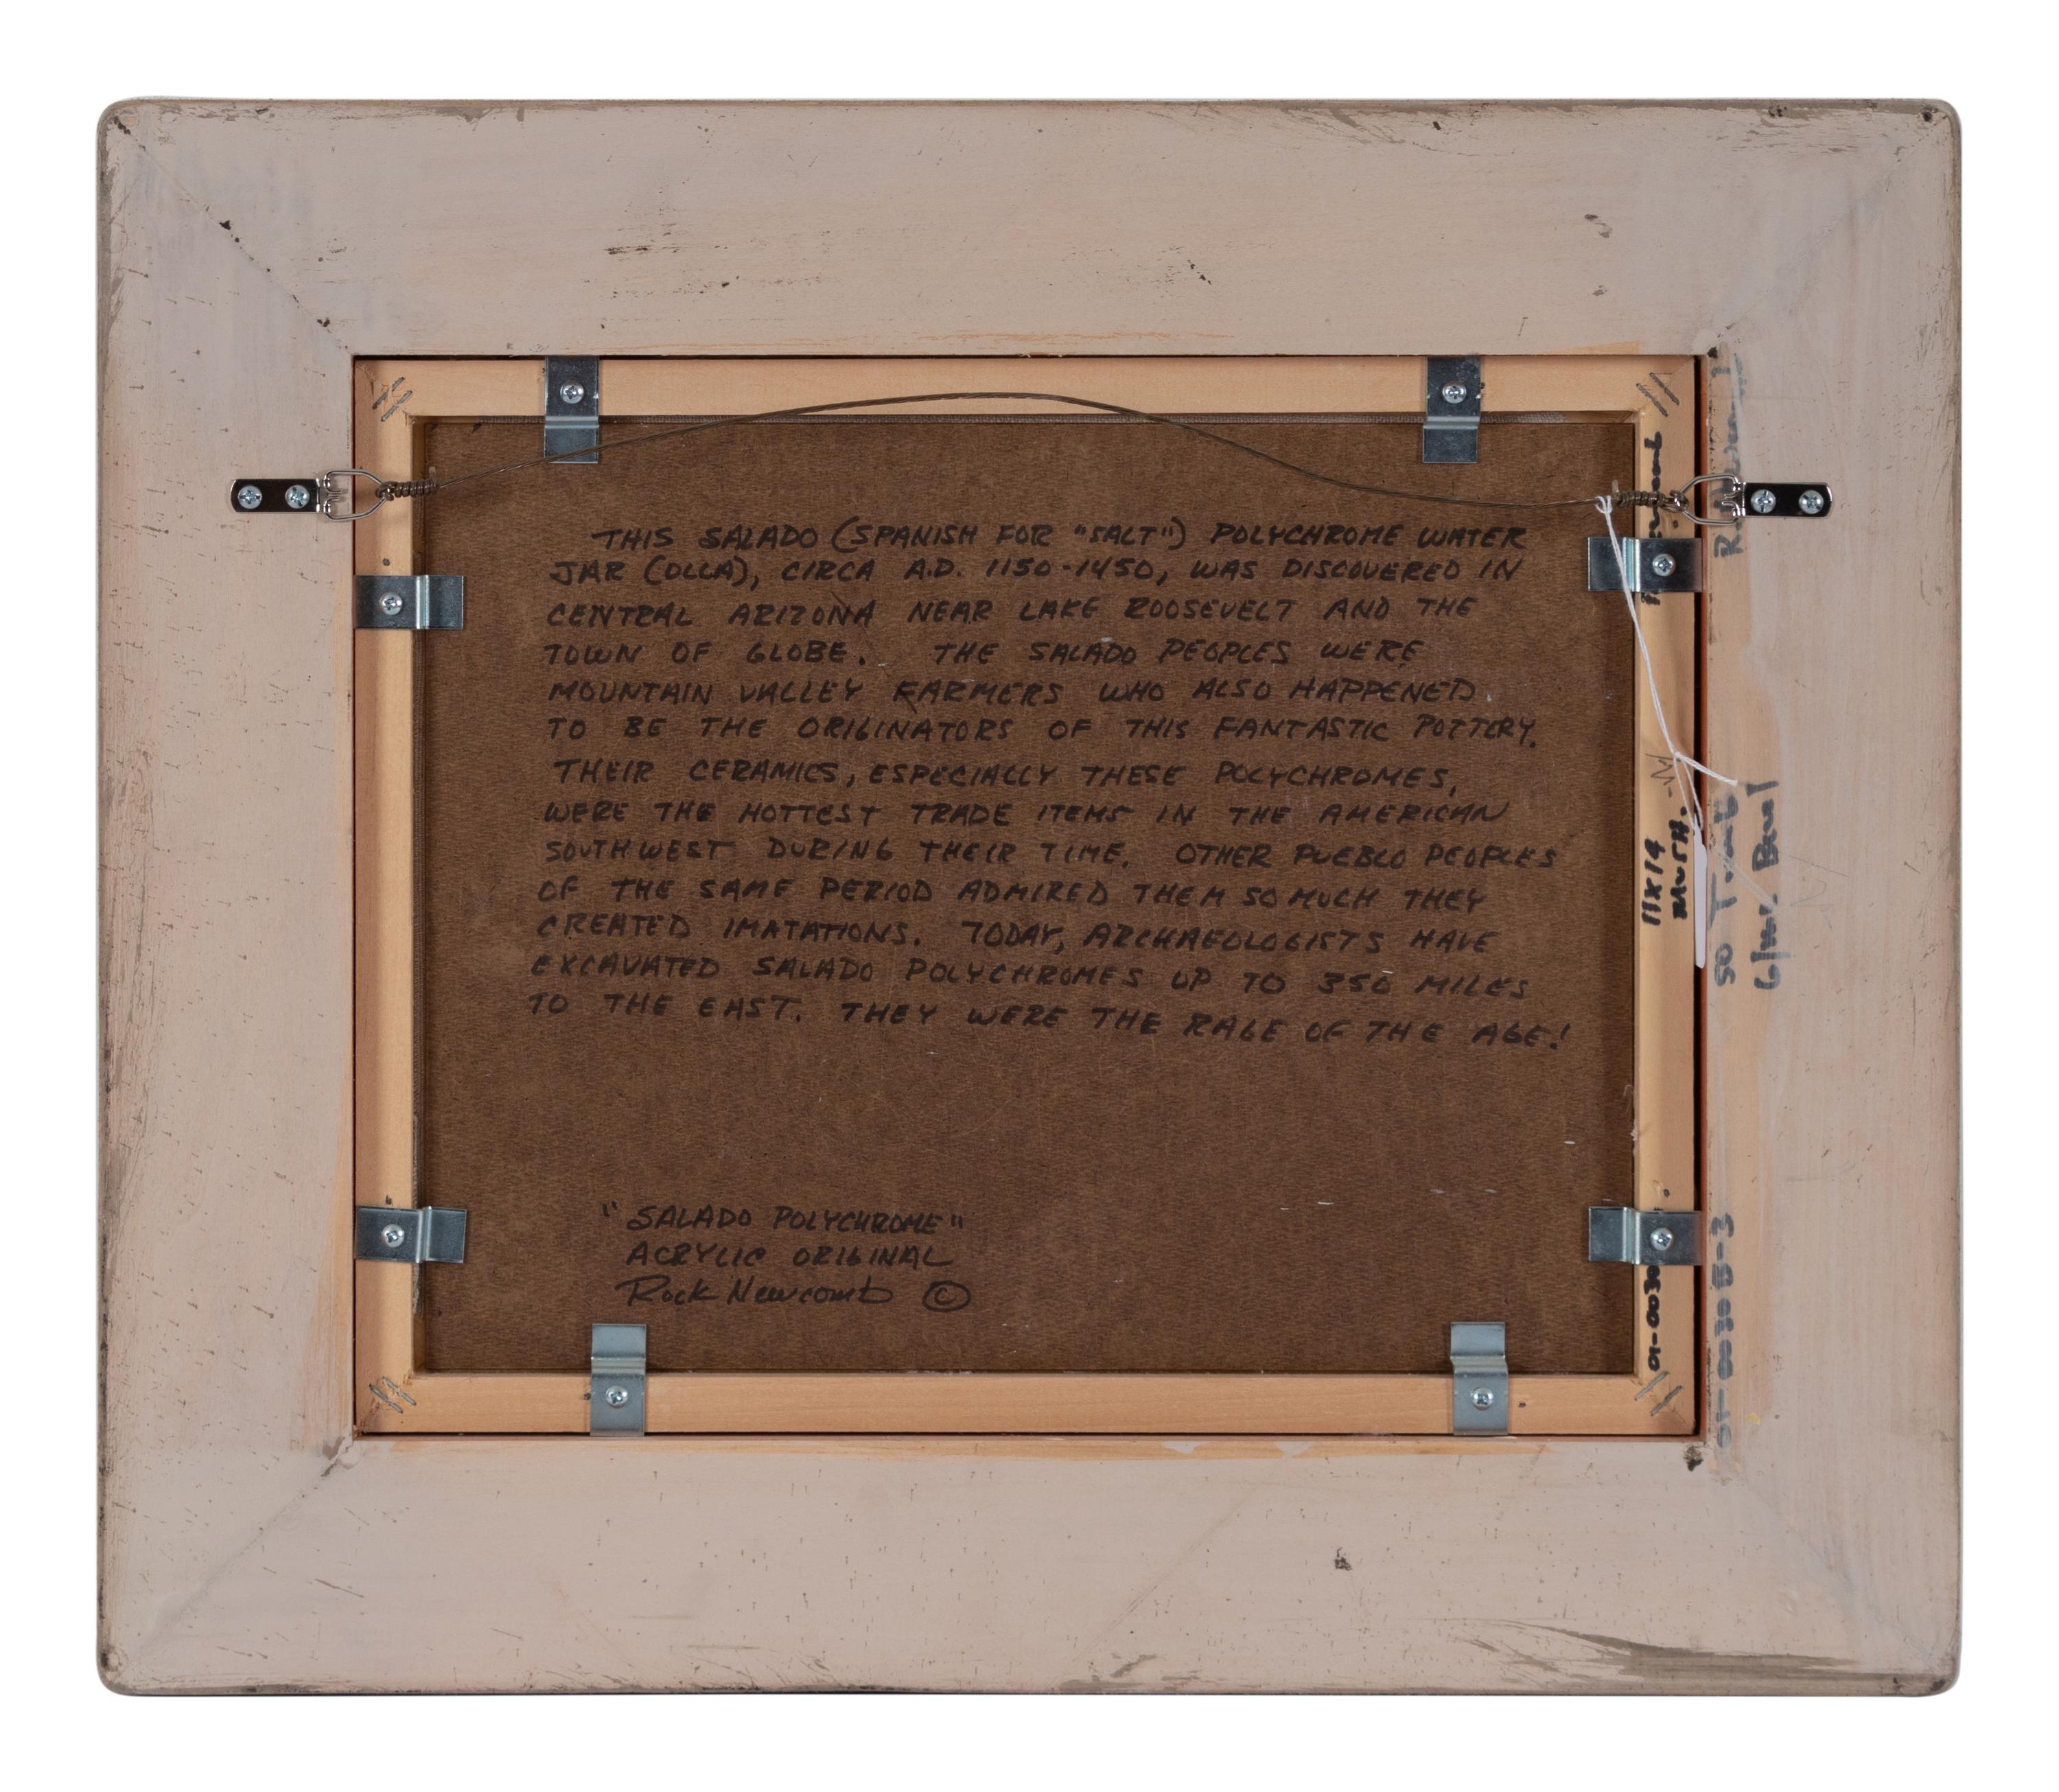 THIS SALADO (SPANISH FOR "SALT") POLYCHROME WATER
JAR (OLLA), CIRCA A.D. 1150-1450, WAS DISCOVERED IN
CENTRAL ARIZONA NEAR LAKE ROOSEVELT AND THE
TOWN OF GLOBE. THE SALADO PEOPLES WERE
MOUNTAIN VALLEY FARMERS WHO ALSO HAPPENED
TO BE THE ORIGINATORS OF THIS FANTASTIC POTTERY.
THEIR CERAMICS, ESPECIALLY THESE POLYCHROMES,
WERE THE HOTTEST TRADE ITEMS IN THE AMERICAN
SOUTHWEST DURING THEIR TIME. OTHER PUEBLO PEOPLES
OF THE SAME PERIOD ADMIRED THEM SO MUCH THEY
CREATED IMATATIONS. TODAY, ARCHAEOLOGISTS HAVE
EXCAVATED SALADO POLYCHROMES UP TO 350 MILES
TO THE EAST. THEY WERE THE RAGE OF THE AGE!
"SALADO POLYCHROME"
ACRYLIC ORIGINAL
Rock Newcomb ©
11x14
01-0030
50
01-0030B-3